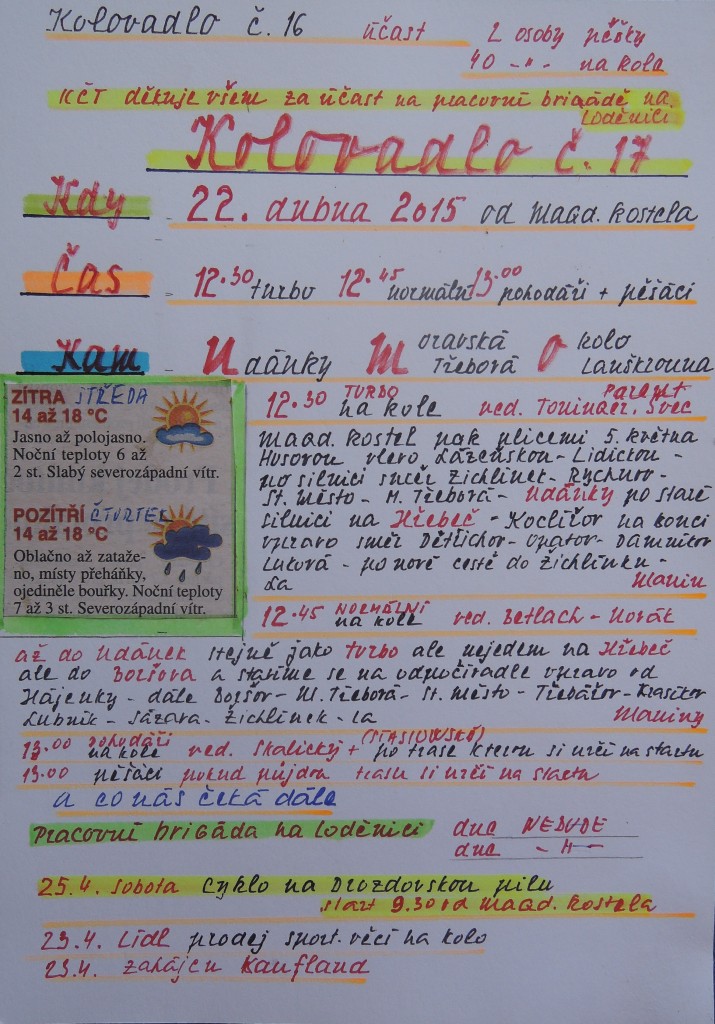 Kolovadlo č. 16 účast 2 osoby pěšky
40 -„- na kole
KČT děkuje všem za účast na pracovní brigádě na
loděnici
Kolovadlo č. 17
Kdy - 22. dubna 2015 od Magd. kostela
Čas - 12.30 turbo 12.45 normální 13.00 pohodáři + pěšáci
Kam Udánky Moravská Třebová Okolo Lanškrouna
ZÍTRA STŘEDA
14 až 18 °C
Jasno až polojasno.
Noční teploty 6 až
2 st. Slabý severozápadní vítr.
POZÍTŘÍ ČTVRTEK
14 až 18 °C
Oblačno až zataže-
no, místy přeháňky,
ojediněle bouřky. Noční teploty
7 až 3 st. Severozápadní vítr.
12.30 TURBO na kole ved. Švec
Magd. kostel pak ulicemi 5. května
Husovou vlevo Lázeňskou - Lidickou -
po silnici směr Žichlínek - Rychnov -
St. Město - M. Třebová - Udánky po staré
silnici na Hřebeč - Koclířov na konci
vpravo směr Dětřichov - Opatov - Damníkov
Luková - po nové cestě do Žichlínku -
La Maniny
12.45 NORMÁLNÍ na kole ved. Betlach - Novák
až do Udánek stejně jako turbo ale nejedem na Hřebeč
ale do Boršova a stavíme se na odpočívadle vpravo od
Hájenky - dále Boršov - M. Třebová - St. Město - Třebařov - Krasíkov
Lubník - Sázava - Žichlínek - La Maniny
13.00 pohodáři na kole ved. Skalický + po trase kterou si určí na startu
13.00 pěšáci pokud půjdou trasu si určí na startu
a co nás čeká dále
Pracovní brigáda na loděnici dne NEBUDE
dne -„-
25.4. sobota Cyklo na Drozdovskou pilu
start 9.30 od Magd. kostela
23.4. Lídl prodej sport. věcí na kolo
23.4. zahájen Kaufland